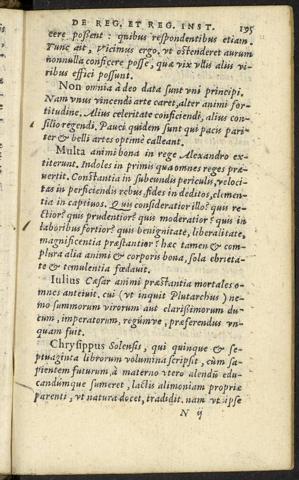 DE REG. ET REG. INST. 195
cere possent : quibus respondentibus etiam.
Tunc ait, Vicimus ergo. vt ostenderet aurum
nonnulla conficere posse, quæ vix vllis alijs vi-
ribus effici possunt.
Non omnia à deo data sunt vni principi.
Nam vnus vincendi arte caret, alter animi for-
titudine. Alius celeritate conficiendi, alius con-
silio regendi. Pauci quidem sunt qui pacis pari-
ter & belli artes optimè calleant.
Multa animi bona in rege Alexandro ex-
titerunt. Indoles in primis qua omnes reges præ-
uertit. Constãtia in subeundis periculis, veloci-
tas in perficiendis rebus, fides in deditos, clemen-
tia in captiuos. Quis consideratior illo? quis re-
ctior? quis prudentior? quis moderatior? quis in
laboribus fortior? quis benignitate, liberalitate,
magnificentia præstantior? hæc tamen & com-
plura alia animi & corporis bona, sola ebrieta-
te & temulentia fœdauit.
Iulius Cæsar animi præstãtia mortales o-
mnes anteiuit. cui (vt inquit Plutarchus) ne-
mo summorum virorum aut clarissimorum du-
cum, imperatorum, regúmve, præferendus vn-
quam fuit.
Chrysippus Solensis, qui quinque & se-
ptuaginta librorum volumina scripsit, cùm sa-
pientem futurum, à materno vtero alendũ edu-
candúmque sumeret, lactis alimoniam propriæ
parenti, vt natura docet, tradidit. nam vt ipse
N ij